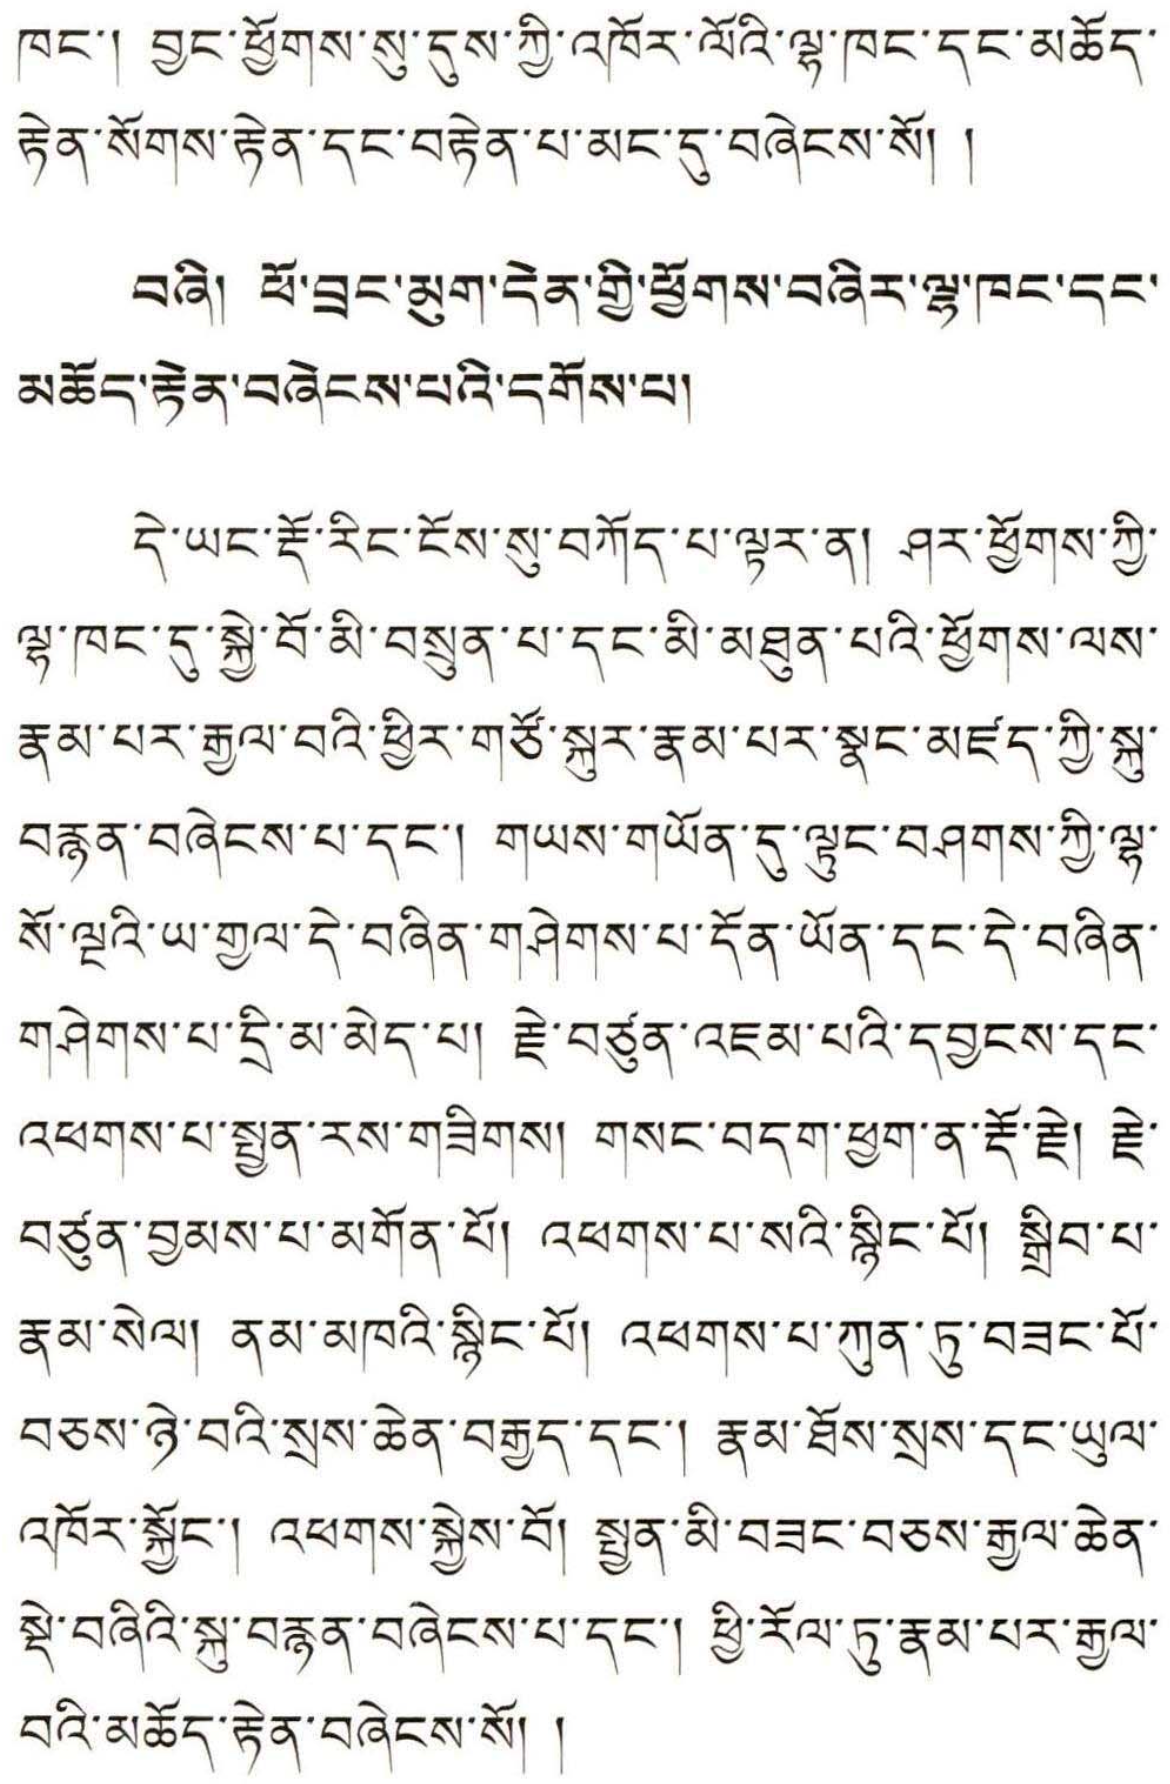 ཁང་། བྱང་ཕྱོགས་སུ་དུས་ཀྱི་འཁོར་ལོའི་ལྷ་ཁང་དང་མཆོད་
རྟེན་སོགས་རྟེན་དང་བརྟེན་པ་མང་དུ་བཞེངས་སོ། །
བཞི། ཕོ་བྲང་མུག་དེན་གྱི་ཕྱོགས་བཞིར་ལྷ་ཁང་དང་
མཆོད་རྟེན་བཞེངས་པའི་དགོས་པ།
དེ་ཡང་རྡོ་རིང་ངོས་སུ་བཀོད་པ་ལྟར་ན། ཤར་ཕྱོགས་ཀྱི་
ལྷ་ཁང་དུ་སྐྱེ་བོ་མི་བསྲུན་པ་དང་མི་མཐུན་པའི་ཕྱོགས་ལས་
རྣམ་པར་རྒྱལ་བའི་ཕྱིར་གཙོ་སྐུར་རྣམ་པར་སྣང་མཛད་ཀྱི་སྐུ་
བརྙན་བཞེངས་པ་དང་། གཡས་གཡོན་དུ་ལྟུང་བཤགས་ཀྱི་ལྷ་
སོ་ལྔའི་ཡ་གྱལ་དེ་བཞིན་གཤེགས་པ་དོན་ཡོན་དང་དེ་བཞིན་
གཤེགས་པ་དྲི་མ་མེད་པ། རྗེ་བཙུན་འཇམ་པའི་དབྱངས་དང་
འཕགས་པ་སྤྱན་རས་གཟིགས། གསང་བདག་ཕྱག་ན་རྡོ་རྗེ། རྗེ་
བཙུན་བྱམས་པ་མགོན་པོ། འཕགས་པ་སའི་སྙིང་པོ། སྒྲིབ་པ་
རྣམ་སེལ། ནམ་མཁའི་སྙིང་པོ། འཕགས་པ་ཀུན་ཏུ་བཟང་པོ་
བཅས་ཉེ་བའི་སྲས་ཆེན་བརྒྱད་དང་། རྣམ་ཐོས་སྲས་དང་ཡུལ་
འཁོར་སྐྱོང་། འཕགས་སྐྱེས་བོ། སྤྱན་མི་བཟང་བཅས་རྒྱལ་ཆེན་
སྡེ་བཞིའི་སྐུ་བརྙན་བཞེངས་པ་དང་། ཕྱི་རོལ་ཏུ་རྣམ་པར་རྒྱལ་
བའི་མཆོད་རྟེན་བཞེངས་སོ། །